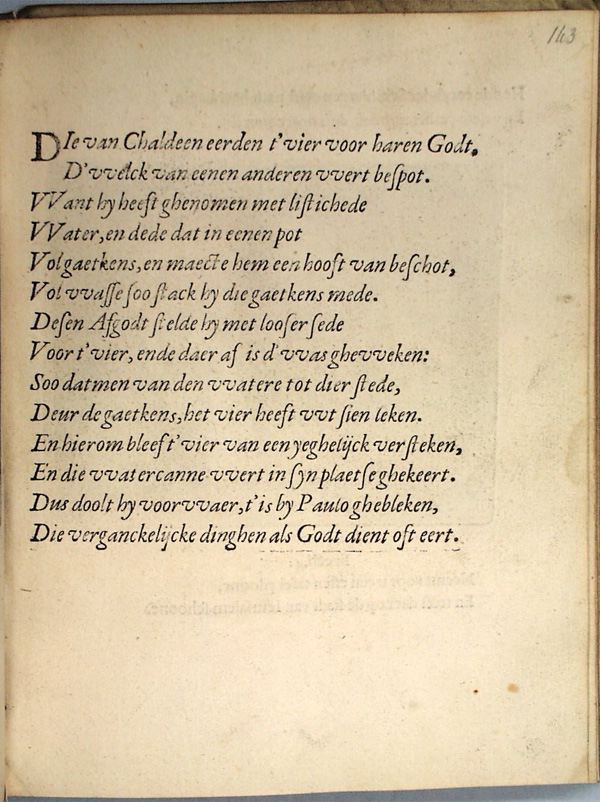 143
DIe van Chaldeen eerden t'vier voor haren Godt,
D'vvelck van eenen anderen vvert bespot.
VVant hy heeft ghenomen met listichede
VVater, en dede dat in eenen pot
Vol gaetkens, en maecte hem een hooft van beschot,
Vol vvasse soo stack hy die gaetkens mede.
Desen Afgodt stelde hy met looser sede
Voor t'vier, ende daer af is d'vvas ghevveken:
Soo datmen van den vvatere tot dier stede,
Deur de gaetkens, het vier heeft vvt sien leken.
En hierom bleef t'vier van een yeghelijck versteken,
En die vvatercanne vvert in syn plaetse ghekeert.
Dus doolt hy voorvvaer, t'is by Paulo ghebleken,
Die verganckelijcke dinghen als Godt dient oft eert.